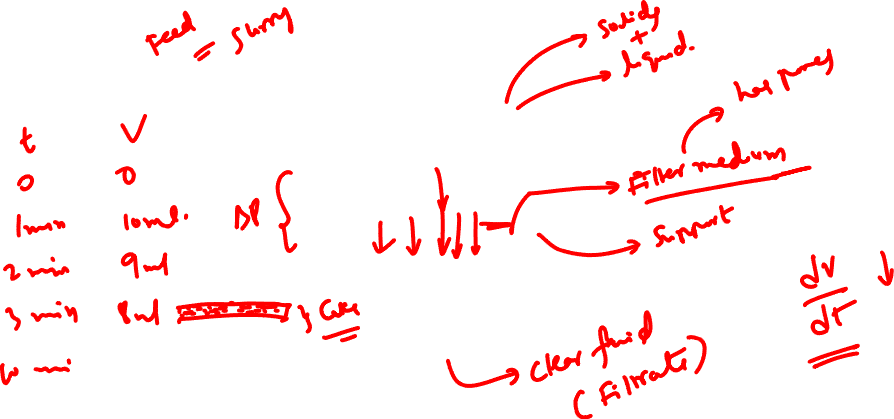 Feed slurry
solids
+
liquid.
has pores
Filter medium
support
t V
0 0
1min 10ml. ΔP
2 min 9ml
3 min 8ml } Cake
10 mi
dV
dt
↓
clear fluid
(Filtrate)